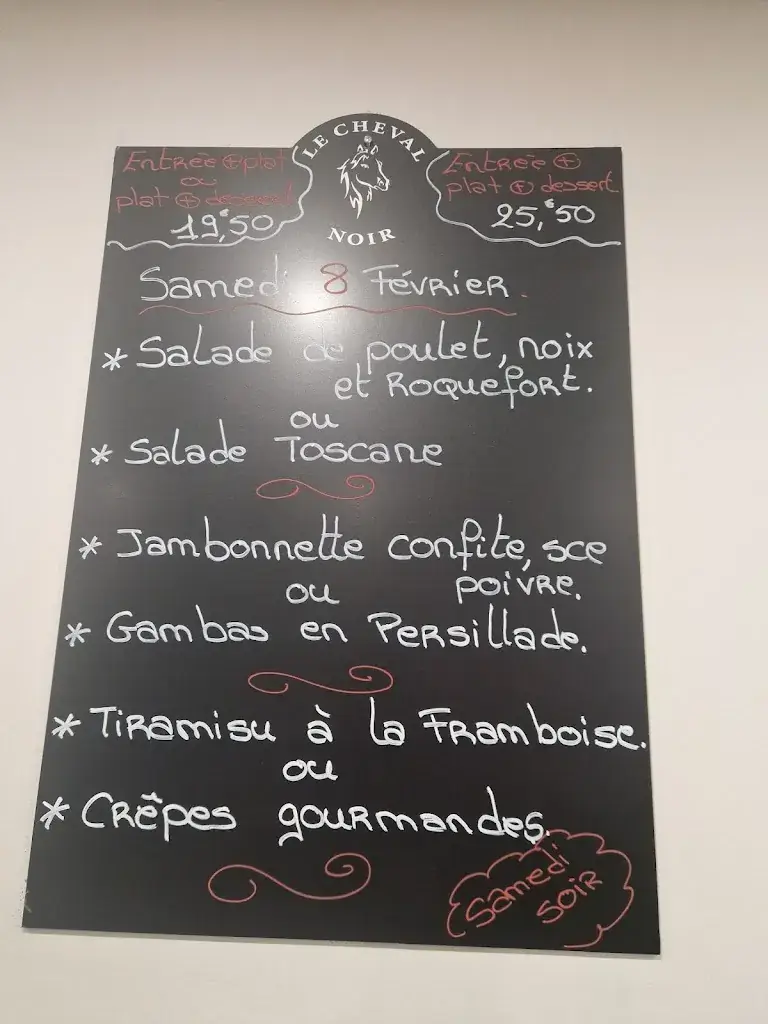 LE CHEVAL
NOIR
Entrée ⊕ plat
ou
plat ⊕ dessert
19,€50
Entrée ⊕
plat ⊕ dessert
25,€50
Samedi 8 Février.
* Salade de poulet, noix
et Roquefort.
ou
* Salade Toscane
* Jambonnette confite, sce
poivre.
ou
* Gambas en Persillade.
* Tiramisu à la Framboise.
ou
* Crêpes gourmandes.
Samedi
soir